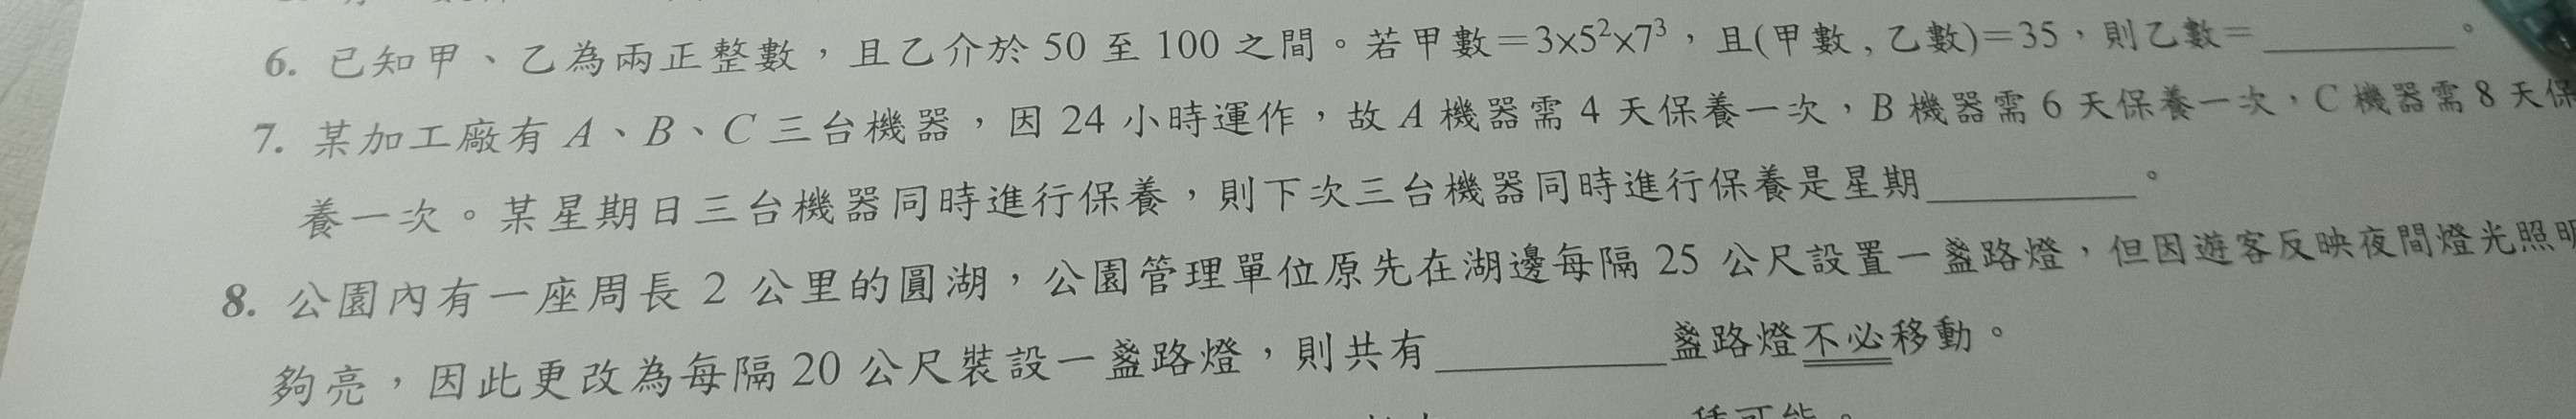 6. 已知甲、乙為兩正整數，且乙介於 50 至 100 之間。若甲數=3×5²×7³，且(甲數,乙數)=35，則乙數=________。
7. 某加工廠有 A、B、C 三台機器，因 24 小時運作，故 A 機器需 4 天保養一次，B 機器需 6 天保養一次，C 機器需 8 天保
養一次。某星期日三台機器同時進行保養，則下次三台機器同時進行保養是星期________。
8. 公園內有一座周長 2 公里的圓湖，公園管理單位原先在湖邊每隔 25 公尺設置一盞路燈，但因遊客反映夜間燈光照明
夠亮，因此更改為每隔 20 公尺裝設一盞路燈，則共有________盞路燈不必移動。
種可能。